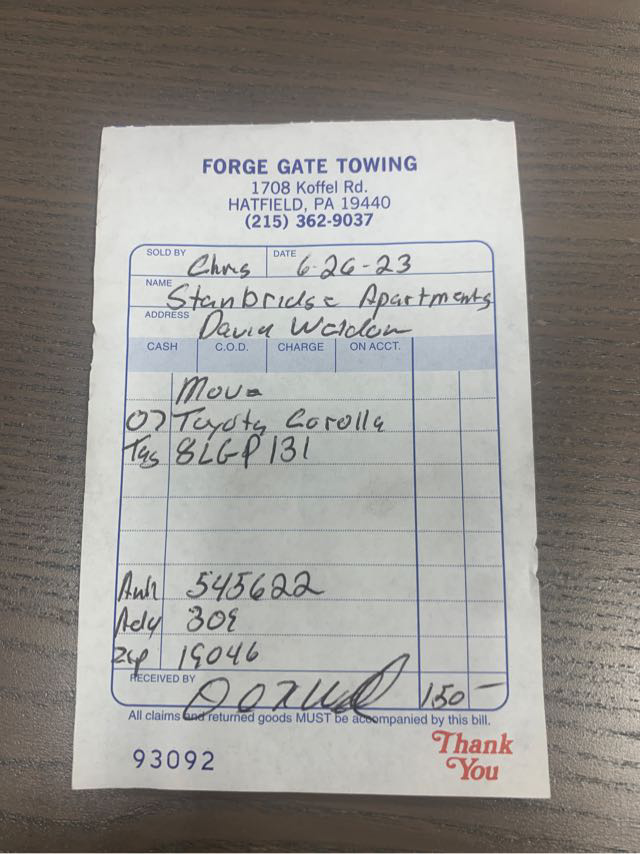 FORGE GATE TOWING
1708 Koffel Rd.
HATFIELD, PA 19440
(215) 362-9037
SOLD BY Chris DATE 6-26-23
NAME Stanbridge Apartments
ADDRESS David Waldon
CASH C.O.D. CHARGE ON ACCT.
Move
07 Toyota Corolla
Tag 8LGP131
Auth 545622
Ady 309
Zip 19046
RECEIVED BY 150-
All claims and returned goods MUST be accompanied by this bill.
93092
Thank
You